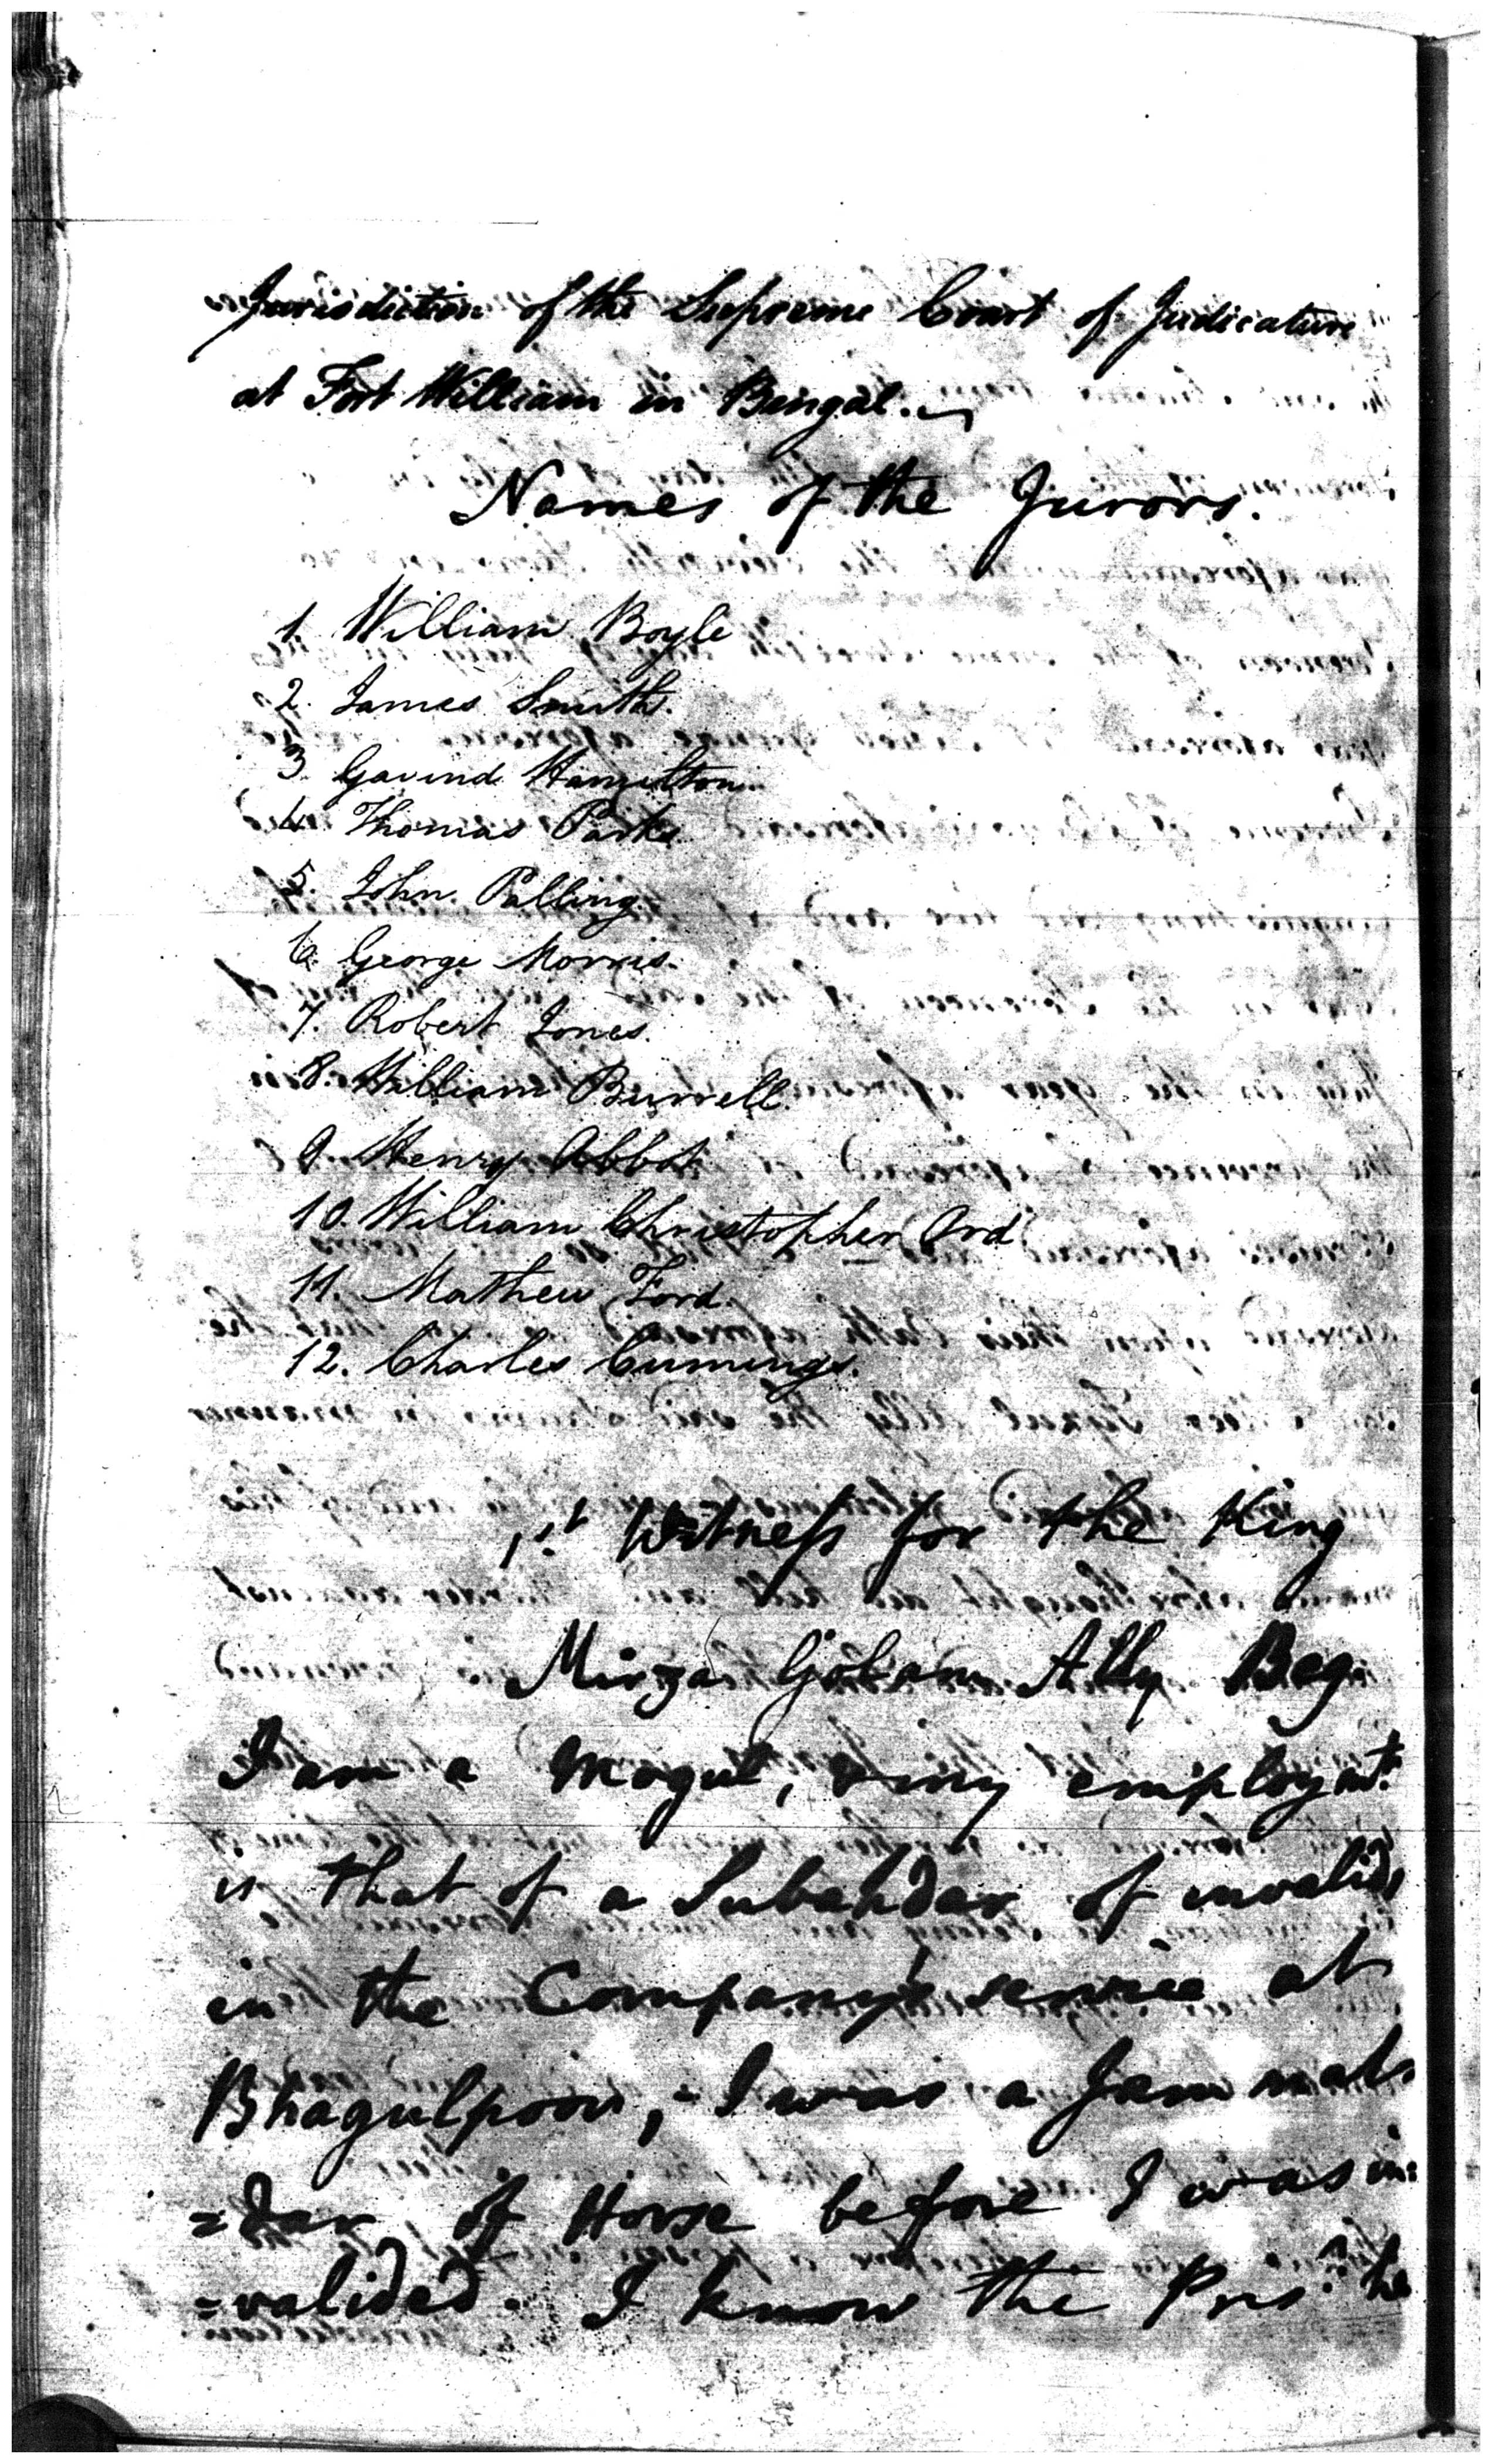 Jurisdiction of the Supreme Court of Judicature
at Fort William in Bengal.
Names of the Jurors.
1. William Boyle
2. James Smith.
3. Gavind Hamilton.
4. Thomas Parks
5. John Palling.
6. George Morris.
7. Robert Jones.
8. William Burrell.
9. Henry Abbot
10. William Christopher Ord
11. Mathew Ford.
12. Charles Cumings.
1st Witness for the King
Mirza Golam Ally Beg.
I am a Mogul, & my employmt.
is that of a Subahdar of invalids
in the Company's service at
Bhagulpoor, - I was a Jammah
=dar of Horse before I was in=
=valided. I know the Prisr. he